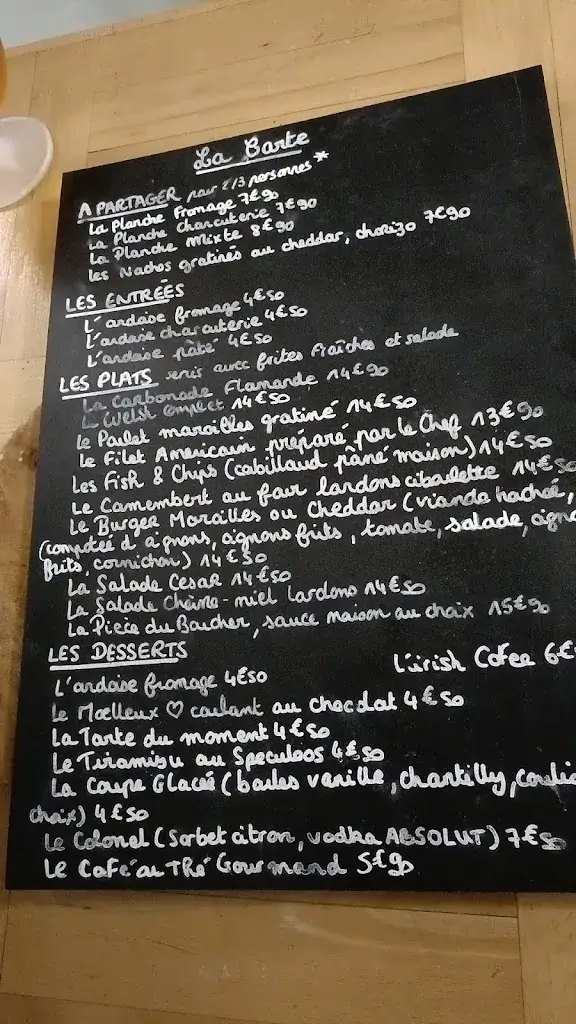 La Carte
A PARTAGER pour 2/3 personnes *
La Planche Fromage 7€90
La Planche Charcuterie 7€90
La Planche Mixte 8€90
Les Nachos gratinés au cheddar, chorizo 7€90
LES ENTRÉES
L'ardoise fromage 4€50
L'ardoise charcuterie 4€50
L'ardoise pâté 4€50
LES PLATS servis avec frites Fraîches et salade
La Carbonade Flamande 14€90
Le Welsh complet 14€50
Le Poulet maroilles gratiné 14€50
Le Filet Americain préparé par le Chef 13€90
Les Fish & Chips (cabillaud pané maison) 14€50
Le Camembert au four lardons ciboulette 14€50
Le Burger Maroilles ou Cheddar (viande hachée,
(compotée d'oignons, oignons frits, tomate, salade,
frits, cornichon) 14€50
La Salade César 14€50
La Salade Chèvre-miel Lardons 14€50
La Pièce du Boucher, sauce maison au choix 15€90
LES DESSERTS
L'irish Cofee 6€
L'ardoise fromage 4€50
Le Moelleux ♡ coulant au chocolat 4€50
La Tarte du moment 4€50
Le Tiramisu au Speculoos 4€50
La Coupe Glacée (boules vanille, chantilly,
choix) 4€50
Le Colonel (Sorbet citron, vodka ABSOLUT) 7€50
Le Café au Thé Gourmand 5€90